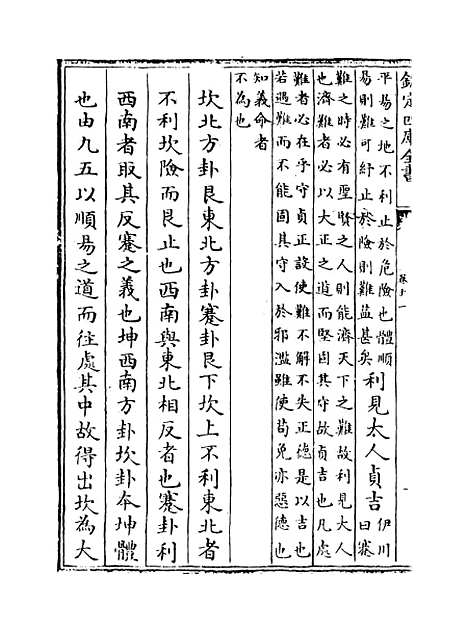 欽定四庫全書
卷十一
平易之地不利止於危險也體順
易則難可紓止於險則難益甚矣利見大人貞吉伊川
曰蹇
難之時必有聖賢之人則能濟天下之難故利見大人
也濟難者必以大正之道而堅固其守故貞吉也凡處
難者必在乎守貞正設使難不解不失正德是以吉也
若遇難而不能固其守入於邪濫雖使苟免亦惡德也
知義命者
不為也
坎北方卦艮東北方卦蹇卦艮下坎上不利東北者
不利坎險而艮止也西南與東北相反者也蹇卦利
西南者取其反蹇之義也坤西南方卦坎卦本坤體
也由九五以順易之道而往處其中故得出坎為大